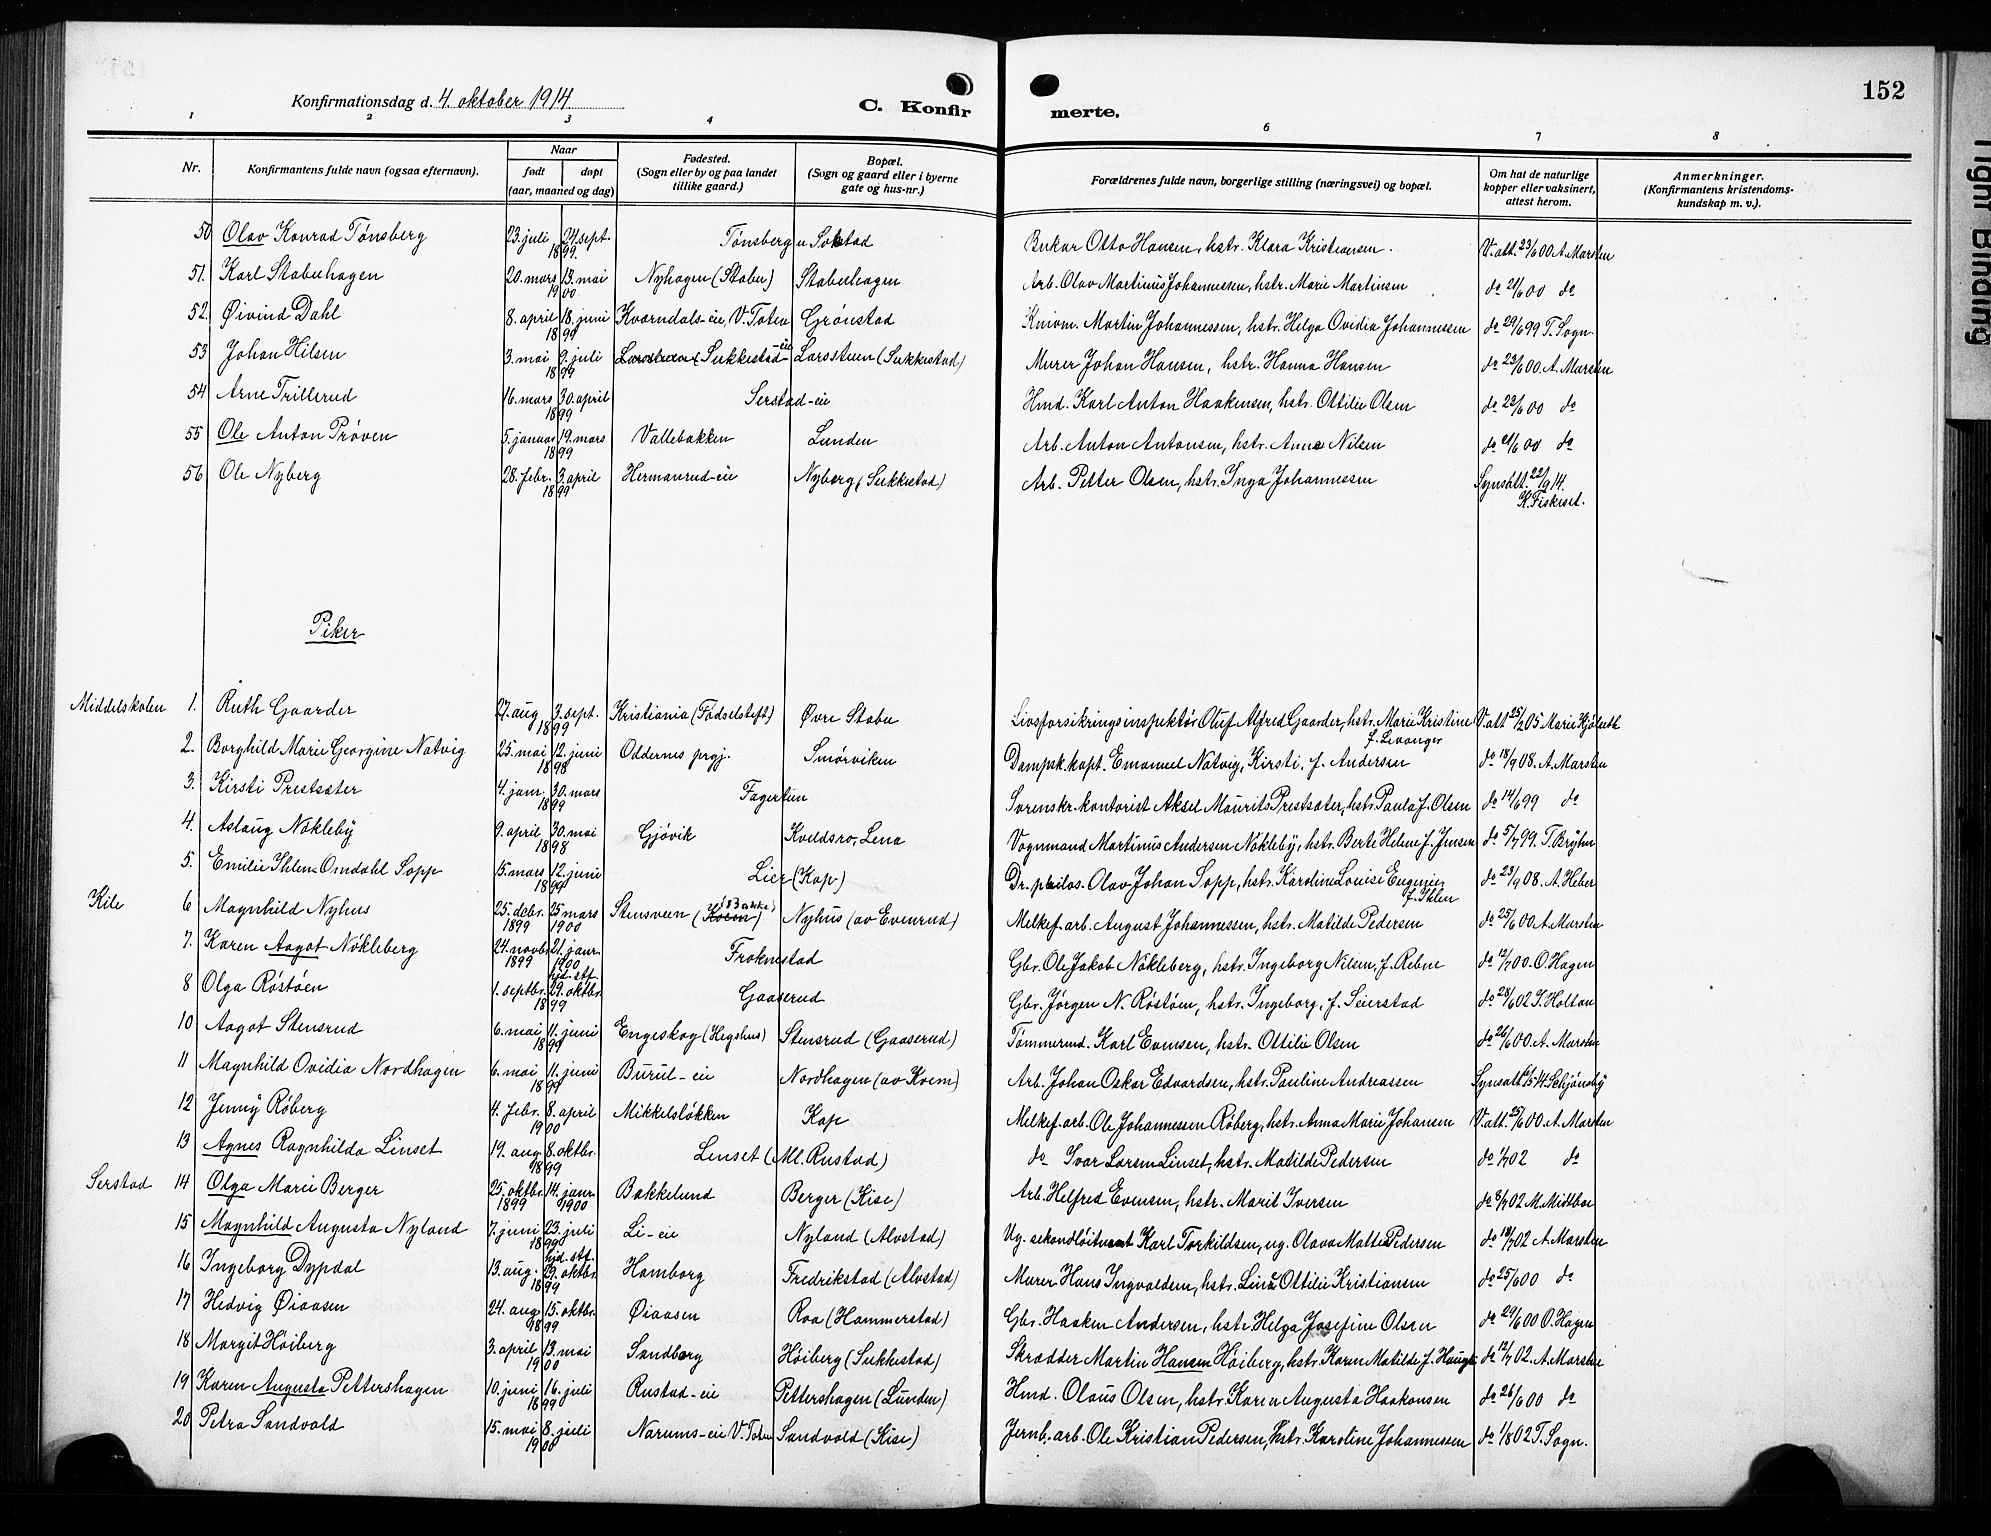 152
Konfirmationsdag d. 4. oktober 1914
C. Konfir merte.
1 2 3 4 6 7 8
Nr. Konfirmantens fulde navn (ogsaa efternavn). Naar født døpt (aar, maaned og dag) Fødested. (Sogn eller by og paa landet tillike gaard.) Bopæl. (Sogn og gaard eller i byerne gate og hus-nr.) Forældrenes fulde navn, borgerlige stilling (næringsvei) og bopæl. Om hat de naturlige kopper eller vaksinert, attest herom. Anmerkninger. (Konfirmantens kristendoms-kundskap m. v.).
50 Olav Konrad Tønsberg 23. juli 24. sept. 1899 Tønsberg u Sokstad Enkar Otto Hansen, hstr. Klara Kristiansen. V. att. 23/6 00 A. Marsten
51. Karl Stabuhagen 20. mars 13. mai 1900 Nyhagen (Stabu) Stabuhagen Arb. Olav Martinus Johannessen, hstr. Marie Martinsen do 21/6 00 do
52. Øivind Dahl 8. april 18. juni 1899 Kværndals-eie, V. Toten Grønstad Knivm. Martin Johannessen, hstr. Helga Ovidia Johannessen do 29/6 99 T. Sogn.
53 Johan Hilsen 3. mai 9. juli 1899 Larssteen (Sukkestad-eie Larssteen (Sukkestad) Murer Johan Hansen, hstr. Hanna Hansen do 23/6 00. A. Marsten
54 Arne Trillerud 16. mars 30. april 1899 Serstad-eie Hmd. Karl Anton Haakensen, hstr. Ottilie Olsen do 22/6 00 do
55 Ole Anton Prøven 5. januar 19. mars 1899 Vallebakken Lunden Arb. Anton Antonsen, hstr. Anna Nilsen do 21/6 00 do
56 Ole Nyberg 28. febr. 3. april 1899 Hermanrud-eie Nyberg (Sukkestad) Arb. Petter Olsen, hstr. Inga Johannessen Synsatt. 22/9 14. K. Fiskeset.
Piker
Middelskolen 1. Ruth Gaarder 27. aug 3. sept. 1899 Kristiania (Fødselstift) Øvre Stabu Livsforsikringsinspektør Oluf Alfred Gaarder, hstr. Marie Kristine f. Levanger V. att 25/2 05 Marie Hjø
2. Borghild Marie Georgine Natvig 25. mai 12. juni 1898 Oddernes prgj. Smørviken Dampsk.kapt. Emanuel Natvig, Kirsti, f. Andersen do 18/9 08. A. Marsten
3. Kirsti Prestsæter 4. janr. 30. mars 1899 Fagertun Sorenskr.-kontorist Aksel Maurits Prestsæter, hstr. Paula f. Olsen do 14/6 99 do
4. Aslaug Nøkleby 9. april 30. mai 1898 Gjøvik Kveldsro, Lena Vognmand Martinus Andersen Nøkleby, hstr. Berte Helene f. Jensen do 5/7 99. T. Bryhn
5. Emilie Ihlen Omdahl Sopp 15. mars 12. juni 1899 Lier (Kap) Dr. philos. Olav Johan Sopp, hstr. Karoline Louise Eugenie f. Ihlen do 23/9 08. A. Heber
Kile 6 Magnhild Nyhus 25. debr. 1899 25 mars 1900 Stensveen (Kvem) Nyhus (av Evenrud) Melkef. arb. August Johannessen, hstr. Matilde Pedersen do 25/6 00 A. Marsten
7. Karen Aagot Nøkleberg 24. novbr. 1899 21. janr. 1900 Froknestad Gbr. Ole Jakob Nøkleberg, hstr. Ingeborg Nilsen, f. Rebne do 12/7 00. O. Hagen
8 Olga Røstøen 1. septbr. hjd. stf. 29. oktbr. 1899 Gaaserud Gbr. Jørgen N. Røstøen, hstr. Ingeborg, f. Seierstad do 28/6 02 J. Holton
10 Aagot Stensrud 6. mai 11. juni 1899 Engeskog (Hegshus) Stensrud (Gaaserud) Tømmermd. Karl Evensen, hstr. Ottilie Olsen do 26/6 00. A. Marsten
11 Magnhild Ovidia Nordhagen 6. mai 11. juni 1899 Burul-eie Nordhagen (av Kvem) Arb. Johan Oskar Edvardsen, hstr. Pauline Andreassen Synsatt. 14 Schjønsby
12 Jenny Røberg 4. febr. 8. april 1900 Mikkelsløkken Kap Melkef. arb. Ole Johannessen Røberg, hstr. Anna Marie Johansen V. att. 25/6 00. A. Marsten
13 Agnes Ragnhilda Linset 19. aug 8. oktbr. 1899 Linset (Ml. Rustad) do Ivar Larsen Linset, hstr. Matilde Pedersen do 1/7 02 do
Serstad 14 Olga Marie Berger 25. oktbr. 1899 14. janr. 1900 Bakkelund Berger (Kise) Arb. Helfred Evensen, hstr. Marit Iversen do 8/7 02 M. Midtbøe
15 Magnhild Augusta Nyland 7. juni 23. juli 1899 Li-eie Nyland (Alvstad) Ug. sekondløitnant Karl Torkildsen, ug. Olava Mattea Pedersen do 18/7 02 A. Marsten
16 Ingeborg Dypdal 13. aug. hjd. stf. 29. oktbr. 1899 Hamborg Fredrikstad (Alvstad) Murer Hans Ingvaldsen, hstr. Lina Ottilie Kristiansen do 25/6 00 do
17 Hedvig Øiaasen 24. aug 15. oktbr. 1899 Øiaasen Roa (Hammerstad) Gbr. Haaken Andersen, hstr. Helga Josefine Olsen do 29/6 00 O. Hagen
18 Margit Høiberg 3. april 13. mai 1900 Sandberg Høiberg (Sukkestad) Skrædder Martin Hansen Høiberg, hstr. Karen Matilde f. Haugli do 12/7 02. A. Marsten
19 Karen Augusta Pettershagen 10. juni 16. juli 1899 Rustad-eie Pettershagen (Lunden) Hmd. Olaus Olsen, hstr. Karen Augusta Haakonsen do 26/6 00 do
20 Petra Sandvold 15. mai 8. juli 1900 Narums-eie V. Toten Sandvold (Kise) Jernb. arb. Ole Kristian Pedersen, hstr. Karoline Johannessen do 1/8 02 T. Sogn.
Tight Binding